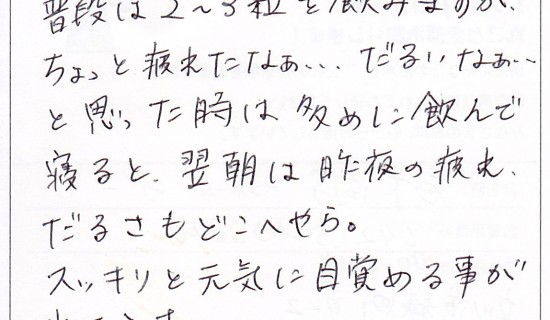 普段は2〜3粒を飲みますが、
ちょっと疲れたなぁ... だるいなぁ...
と思った時は多めに飲んで
寝ると、翌朝は昨夜の疲れ、
だるさもどこへやら。
スッキリと元気に目覚める事が